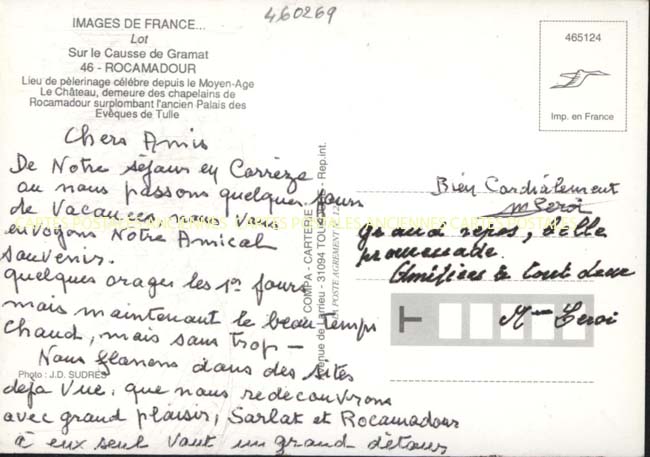 460269
IMAGES DE FRANCE...
Lot
Sur le Causse de Gramat
46 - ROCAMADOUR
Lieu de pèlerinage célèbre depuis le Moyen-Age
Le Château, demeure des chapelains de
Rocamadour surplombant l'ancien Palais des
Evêques de Tulle
465124
Imp. en France
Chers Amis
De Notre séjour en Corrèze
ou nous passons quelques jours
de Vacances nous vous
envoyons Notre Amical
souvenir.
quelques orages les 1ers jours
mais maintenant le beau temps
chaud, mais sans trop -
Nous flanons dans des sites
deja vue, que nous redecouvrons
avec grand plaisir, Sarlat et Rocamadour
à eux seul vaut un grand détour
Photo : J.D. SUDRES
COMPA - CARTERIE
Avenue de Larrieu - 31094 TOULOUSE - Rep.int.
LA POSTE AGREMENT N°
CARTES POSTALES ANCIENNES CARTES POSTALES ANCIENNES CARTES POSTALES
Bien Cordialement
grand repos, belle
promenade.
Amitiées à tout deux
T
Mme